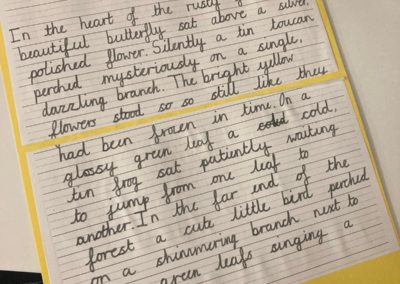 In the heart of the rusty
beautiful butterfly sat above a silver,
polished flower. Silently a tin toucan
perched mysteriously on a single,
dazzling branch. The bright yellow
flowers stood so so still like they
had been frozen in time. On a
glossy green leaf a cold, cold,
tin frog sat patiently waiting
to jump from one leaf to
another. In the far end of the
forest a cute little bird perched
on a shimmering branch next to
green leafs singing a